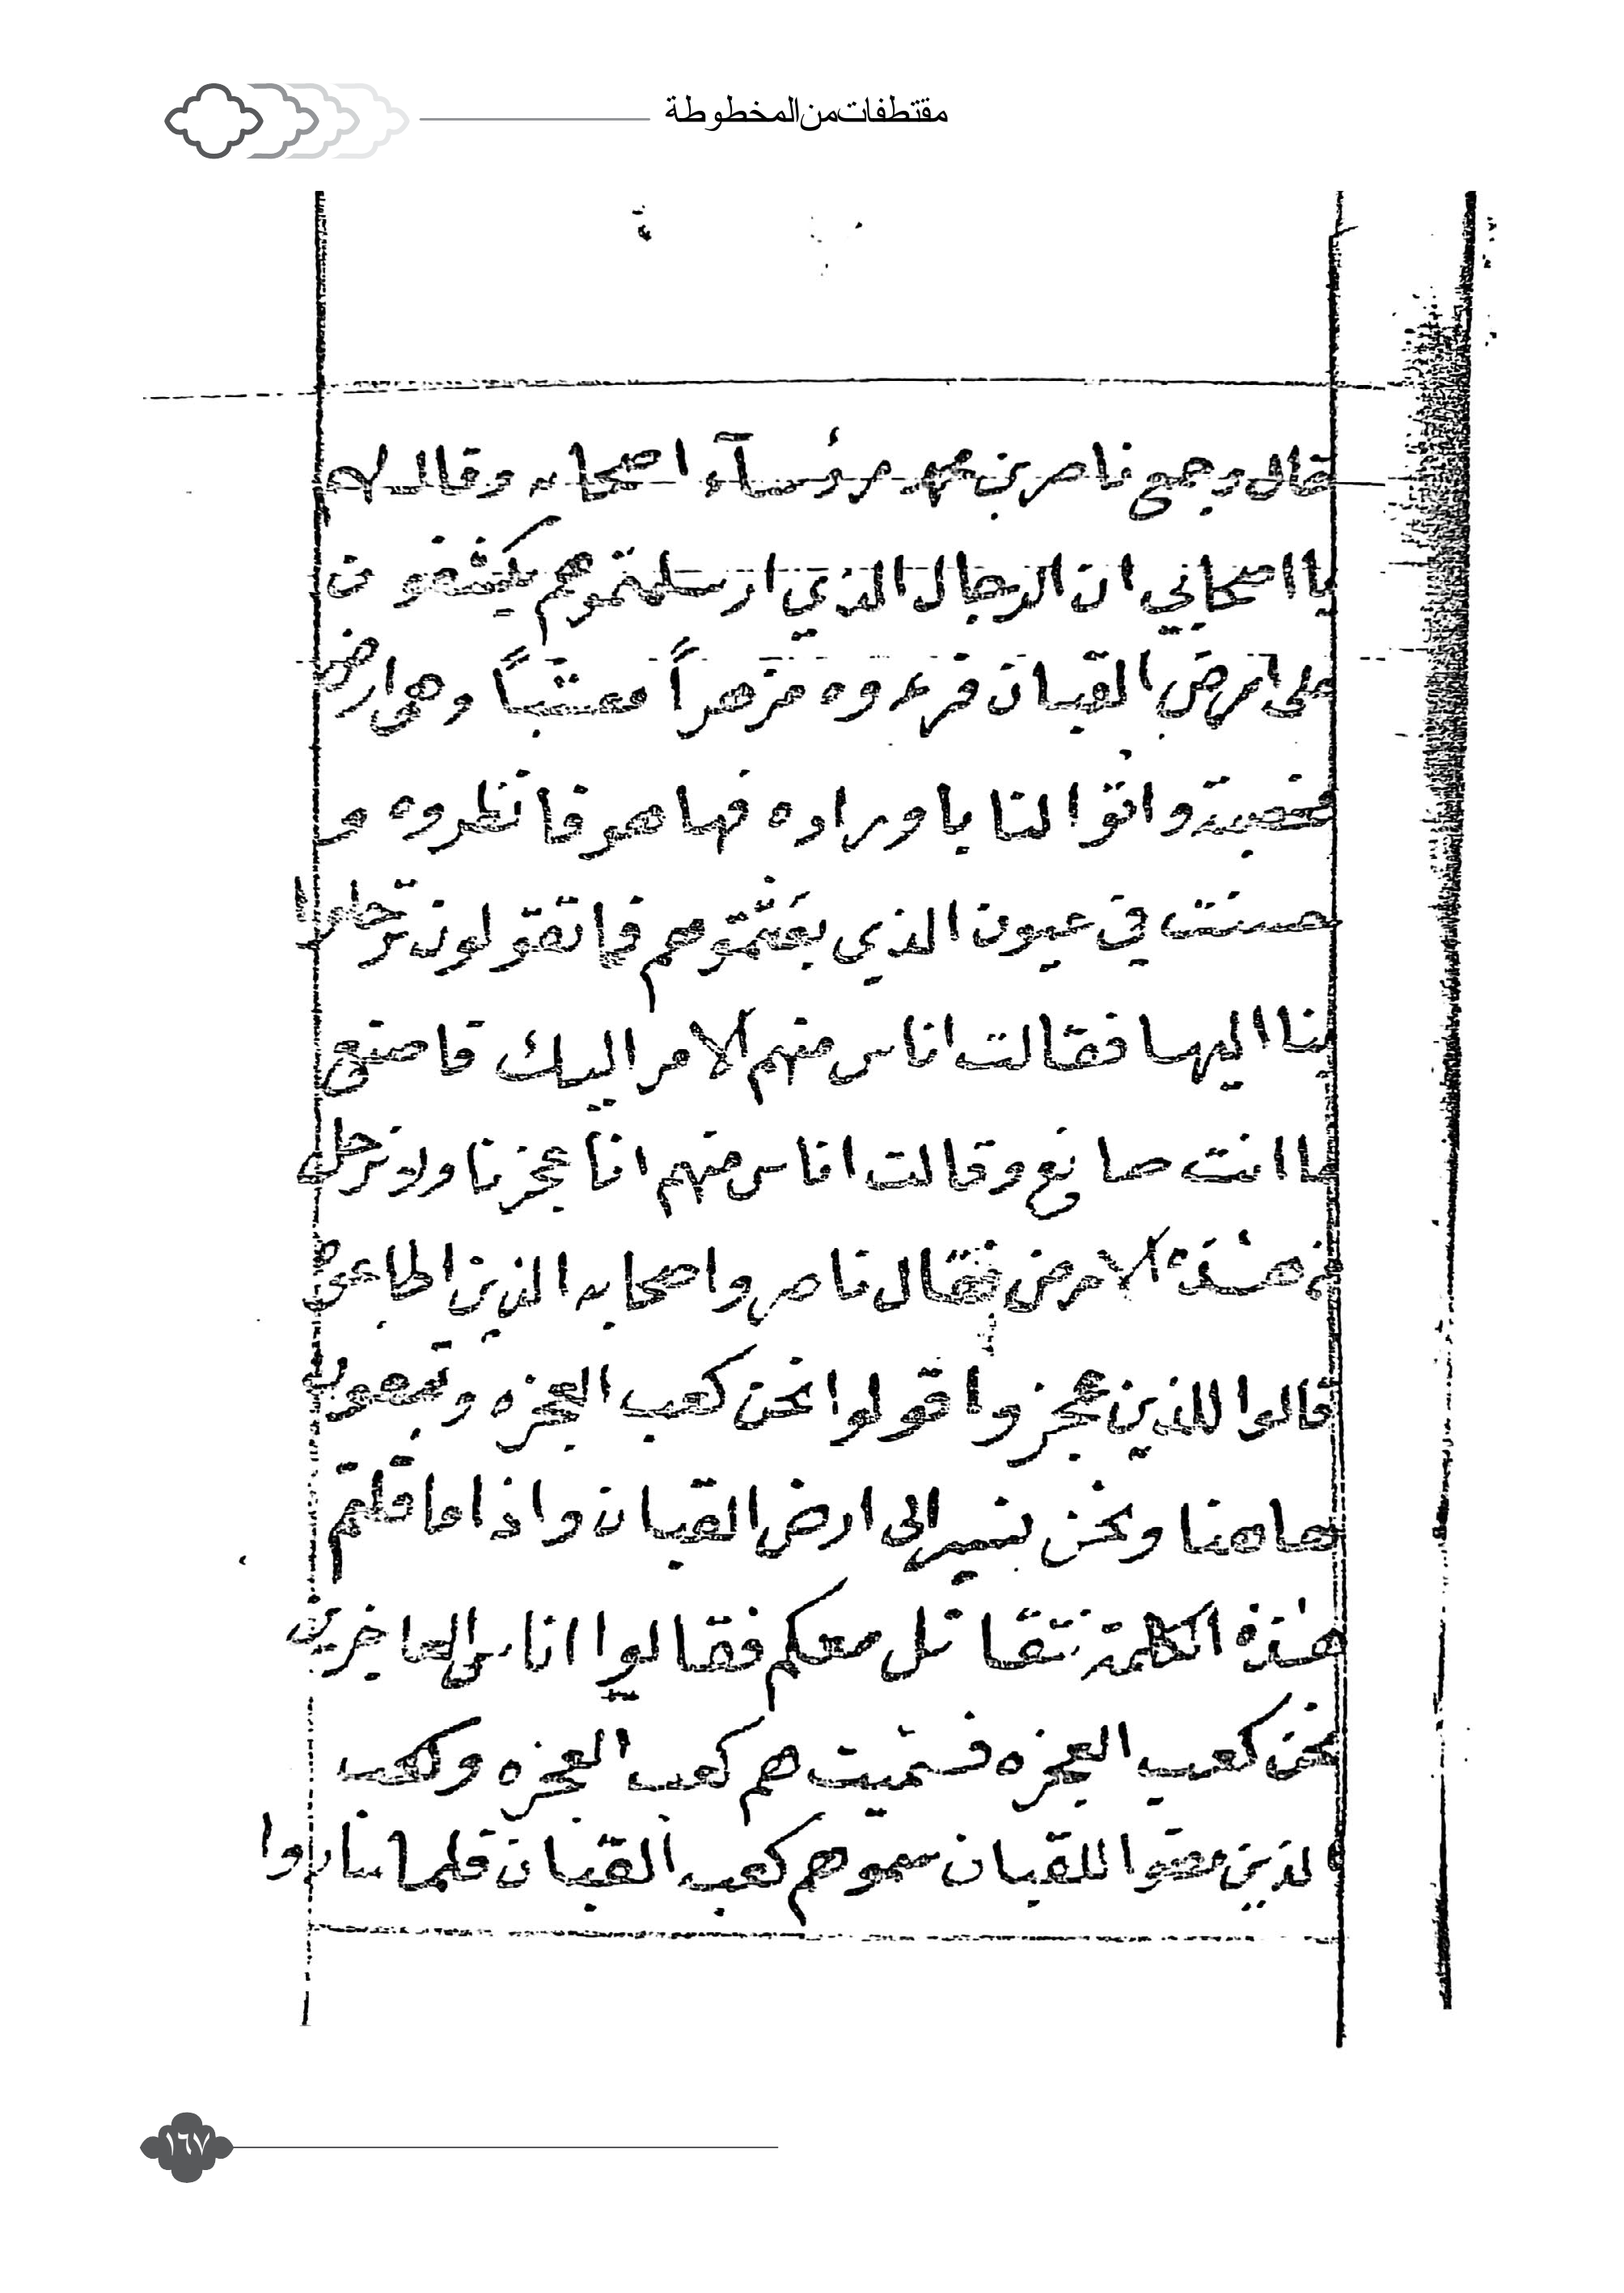 مقتطفات من المخطوطة
قال وجمع ناصر بن محمد رؤسآء اصحابه وقال لهم
يا اصحابي ان الرجال الذي ارسلتموهم يكشفون
على ارض القبان فرءوه مزهراً معشباً وهي ارض
مخصبة واتوا لنا باوراده فها هو فانظروه و
حسنت في عيون الذي بعثتموهم فما تقولون ترحلوا
بنا اليها فقالت اناس منهم الامر اليك فاصنع
ما انت صانع وقالت اناس منهم انا عجزنا ولا نرحل
هذه الارض فقال ناصر واصحابه الذين اطاعوه
قالوا للذين عجزوا قولوا نحن كعب العجزه وتبقون
هاهنا ونحن نسير الى ارض القبان واذا ما قلتم
هذه الكلمة نتقاتل معكم فقالوا اناس العاجزين
نحن كعب العجزه فسميت هم كعب العجزه وكعب
الذين مضوا للقبان سموهم كعب القبان فلما ساروا
١٦٧